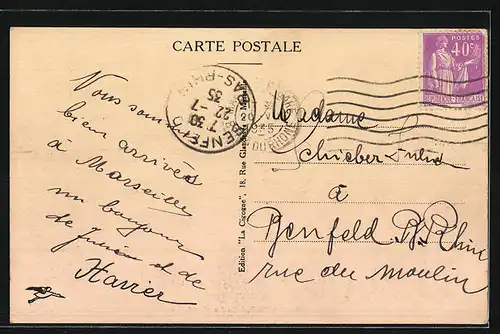 CARTE POSTALE
Vous sommes
bien arrivés
à Marseille
un bonjour
de Junie et de
Xavier
Edition "La Cigogne", 18, Rue
BENFELD
7 30
22 -7
35
BAS-RHIN
POSTES
40c
Madame
Schieber Julie
à
Benfeld B. Rhin
rue du Moulin